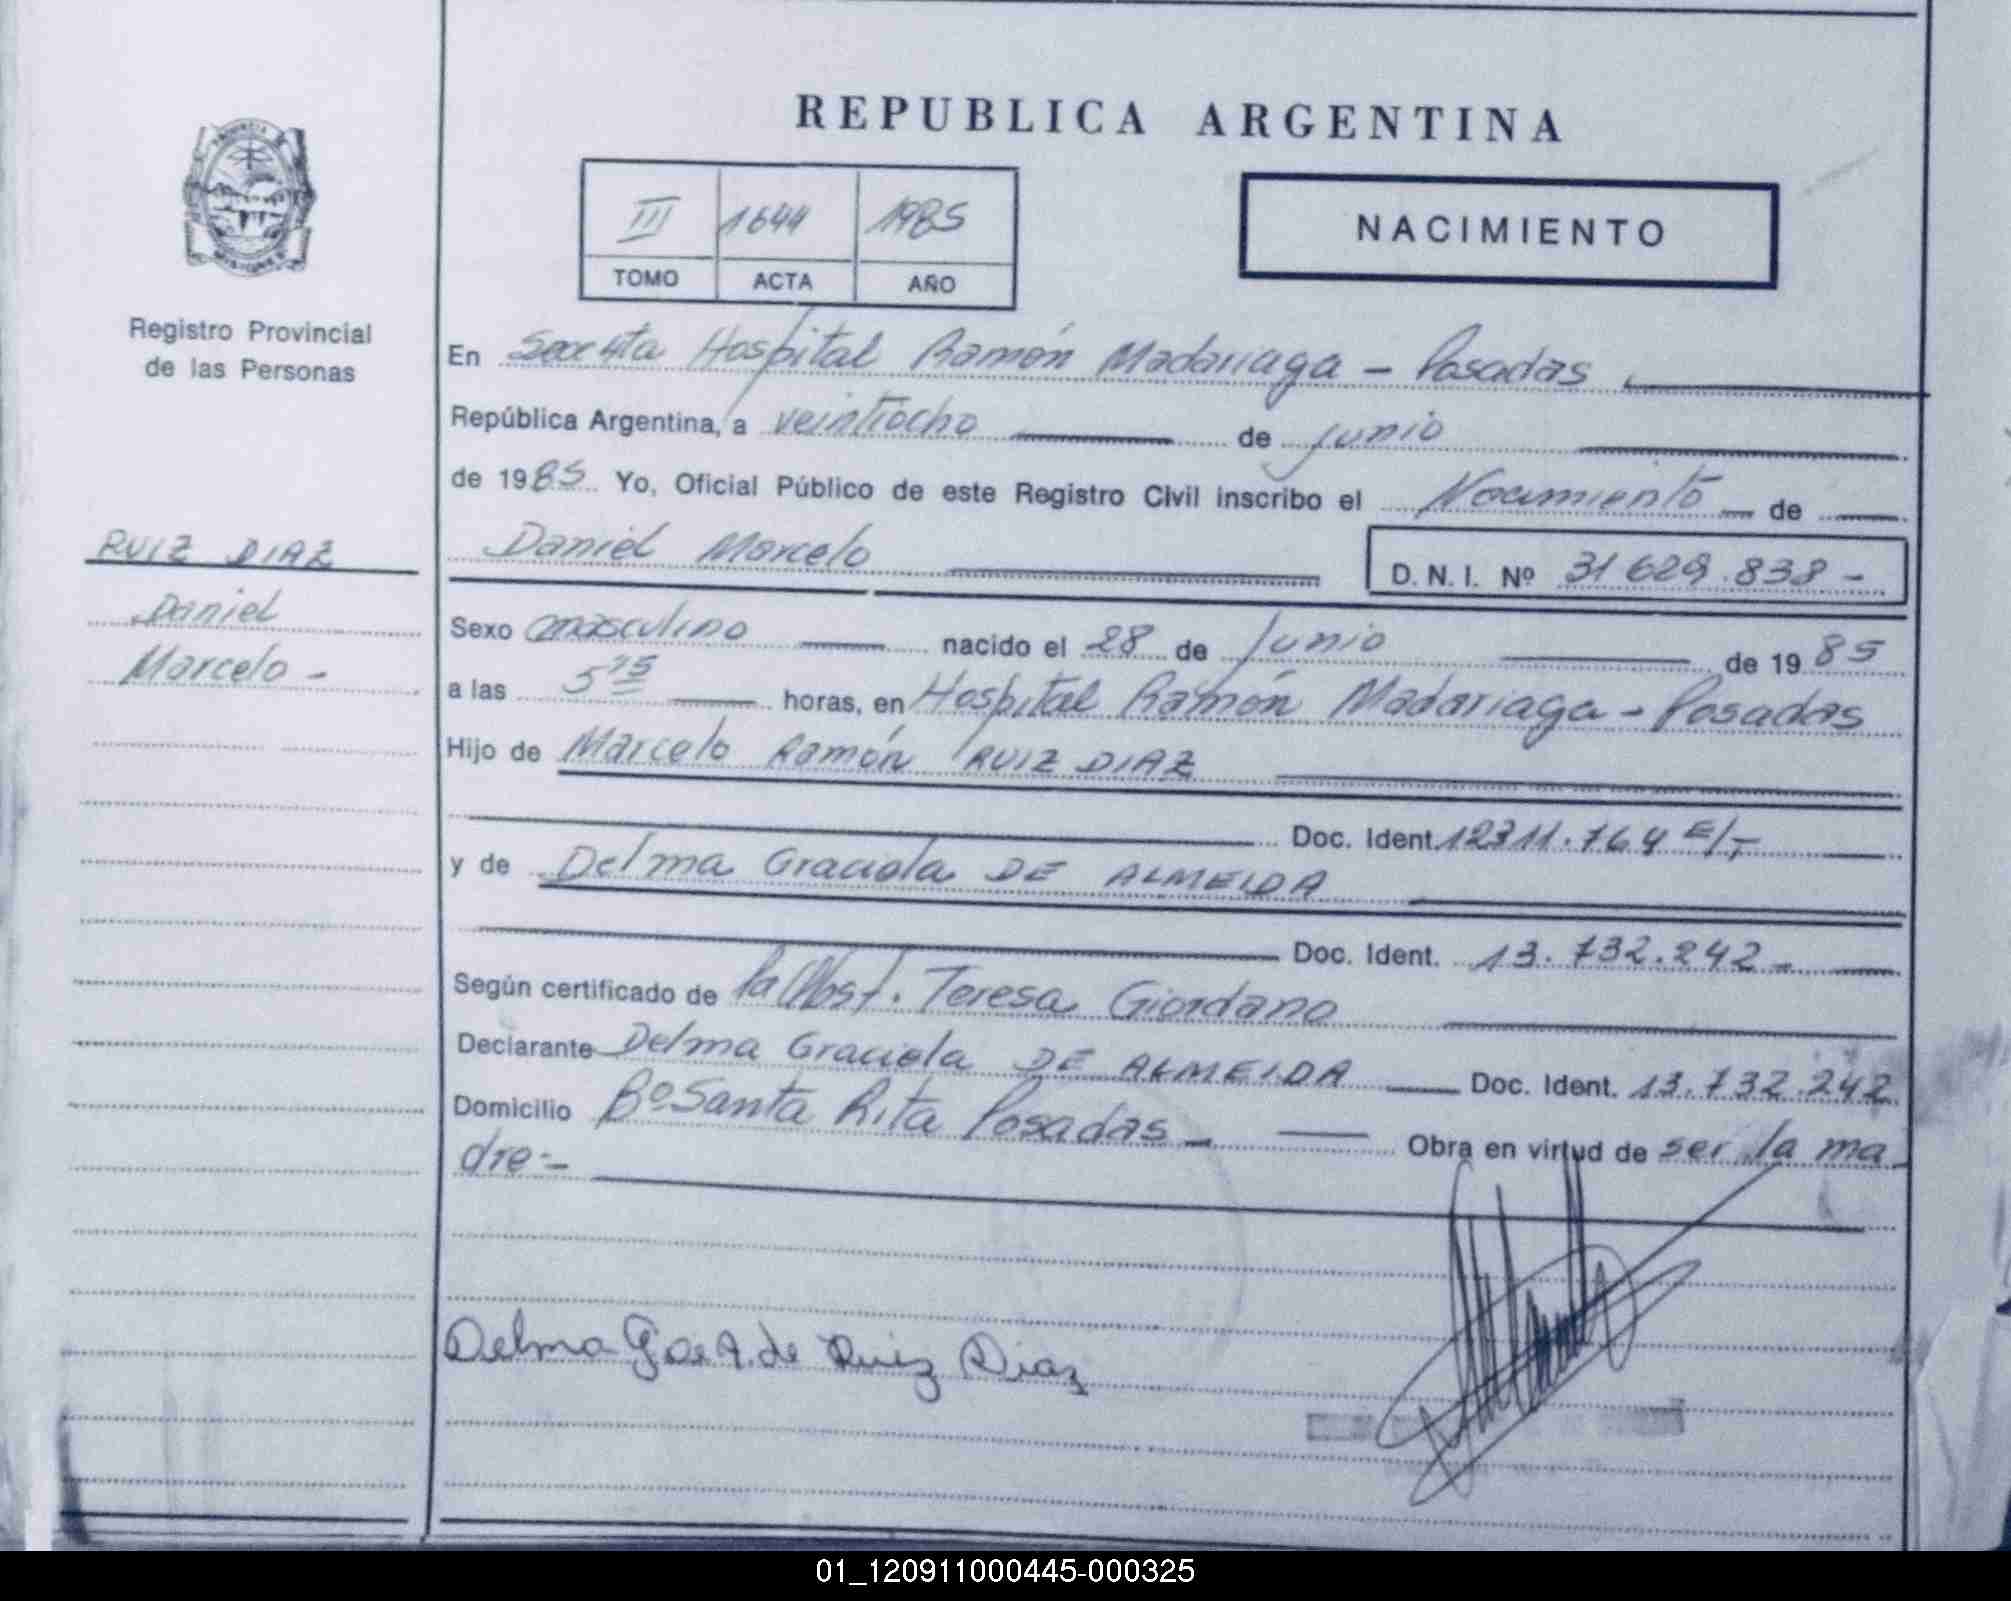 REPUBLICA ARGENTINA
III 1644 1985
TOMO ACTA AÑO
NACIMIENTO
Registro Provincial
de las Personas
RUIZ DIAZ
Daniel
Marcelo -
En Secc 4ta Hospital Ramón Madariaga - Posadas
República Argentina, a veintiocho de junio
de 1985 Yo, Oficial Público de este Registro Civil inscribo el Nacimiento de
Daniel Marcelo D. N. I. Nº 31 629.838 -
Sexo masculino nacido el 28 de Junio de 1985
a las 5 horas, en Hospital Ramón Madariaga - Posadas
Hijo de Marcelo Ramón RUIZ DIAZ
Doc. Ident. 12311.764 E/T
y de Delma Graciela DE ALMEIDA
Doc. Ident. 13.732.242 -
Según certificado de la Obst. Teresa Giordano
Declarante Delma Graciela DE ALMEIDA Doc. Ident. 13.732.242
Domicilio Bº Santa Rita Posadas - Obra en virtud de ser la ma
dre -
Delma G de A. de Ruiz Diaz
01_120911000445-000325